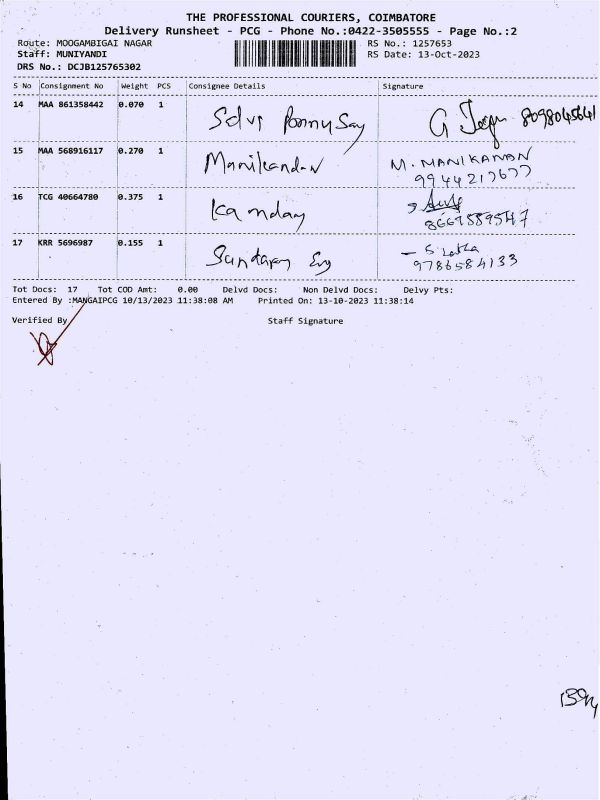 THE PROFESSIONAL COURIERS, COIMBATORE
Delivery Runsheet - PCG - Phone No.:0422-3505555 - Page No.:2
Route: MOOGAMBIGAI NAGAR RS No.: 1257653
Staff: MUNIYANDI RS Date: 13-Oct-2023
DRS No.: DCJB125765302
S No Consignment No Weight PCS Consignee Details Signature
14 MAA 861358442 0.070 1 8098045641
15 MAA 568916117 0.270 1 Manikandan M. MANIKANDAN
9944217677
16 TCG 40664780 0.375 1
8667889547
17 KRR 5696987 0.155 1 S. Latha
9786584133
Tot Docs: 17 Tot COD Amt: 0.00 Delvd Docs: Non Delvd Docs: Delvy Pts:
Entered By :MANGAIPCG 10/13/2023 11:38:08 AM Printed On: 13-10-2023 11:38:14
Verified By Staff Signature